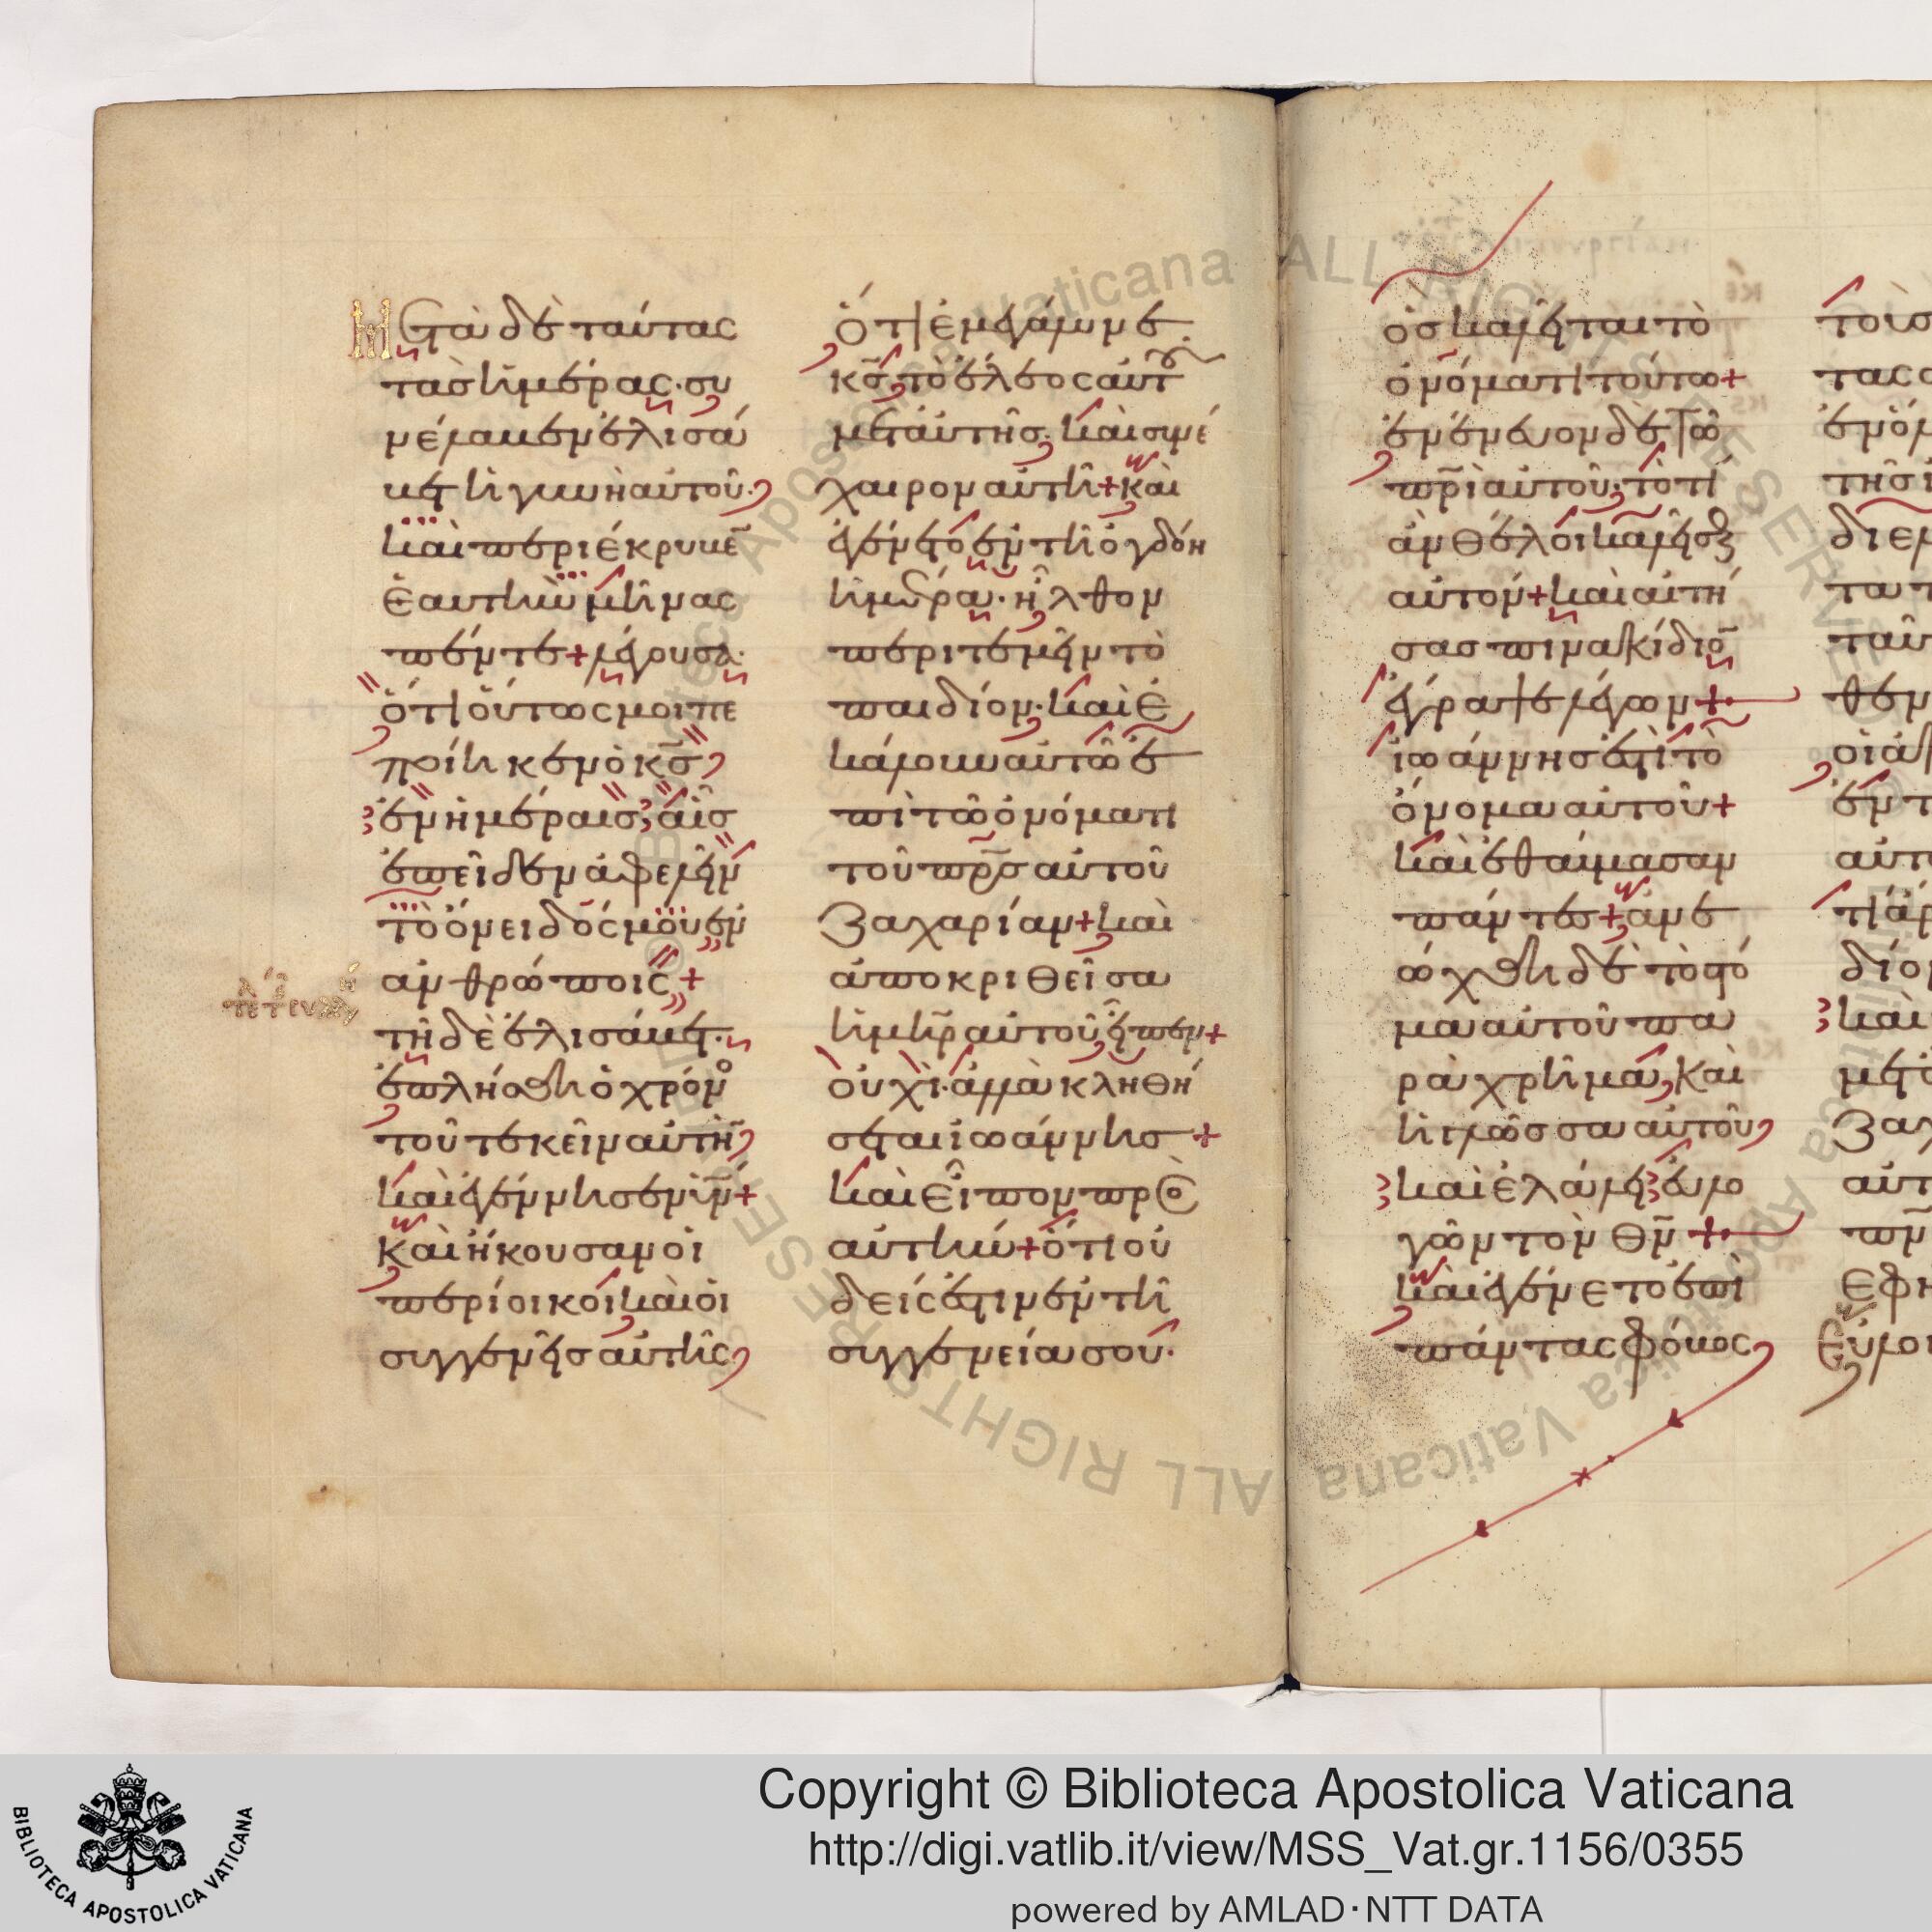 Μετὰ δὲ ταύτας
τὰς ἡμέρας· συ
νέλαβεν ἐλισά
βετ ἡ γυνὴ αὐτοῦ·
καὶ περιέκρυβε̄
ἑαυτὴν μῆνας
πέντε + λέγουσα·
ὅτι οὕτως μοι πε
ποίηκεν ὁ κ̅σ̅
ἐν ἡμέραις αἷς
ἐπεῖδεν ἀφελεῖν
τὸ ὄνειδός μου ἐν
ἀνθρώποις +
τῇ δὲ ἐλισάβετ·
ἐπλήσθη ὁ χρόν
τοῦ τεκεῖν αὐτή̄
καὶ ἐγέννησεν υἱ̅ν̅ +
Καὶ ἤκουσαν οἱ
περίοικοι καὶ οἱ
συγγενεῖς αὐτῆς
ὅτι ἐμεγάλυνε
κ̅ς̅ τὸ ἔλεος αὐτοῦ
μετ' αὐτῆς· καὶ συνέ
χαιρον αὐτῇ + καὶ
ἐγένετο ἐν τῇ ὀγδόη
ἡμέρα· ἦλθον
περιτεμεῖν τὸ
παιδίον· καὶ ἐ
κάλουν αὐτὸ ἐ
πὶ τῷ ὀνόματι
τοῦ π̅ρ̅ς̅ αὐτοῦ
Ζαχαρίαν + καὶ
ἀποκριθεῖσα
ἡ μ̅η̅ρ̅ αὐτοῦ εἶπεν +
οὐχὶ· ἀλλὰ κληθή
σεται ἰωάννης +
καὶ εἶπον πρὸ
αὐτὴν + ὅτι οὐ
δείς ἐστιν ἐν τῇ
συγγενεία σου·
ὃς καλεῖται τῷ
ὀνόματι τούτω +
ἐνένευον δὲ τῶ
π̅ρ̅ι̅ αὐτοῦ· τὸ τί
ἂν θέλοι καλεῖσθ
αὐτόν + καὶ αἰτή
σας πινακίδιο̄
ἔγραψε λέγων +
ἰωάννης ἐστὶ τὸ
ὄνομα αὐτοῦ +
καὶ ἐθαύμασαν
πάντες + ἀνε
ώχθη δὲ τὸ στό
μα αὐτοῦ πα
ραχρῆμα, καὶ
ἡ γλῶσσα αὐτοῦ
καὶ ἐλάλει εὐλο
γῶν τὸν θ̅ν̅ +
καὶ ἐγένετο ἐπὶ
πάντας φόβος
Copyright © Biblioteca Apostolica Vaticana
http://digi.vatlib.it/view/MSS_Vat.gr.1156/0355
powered by AMLAD·NTT DATA
BIBLIOTECA APOSTOLICA VATICANA